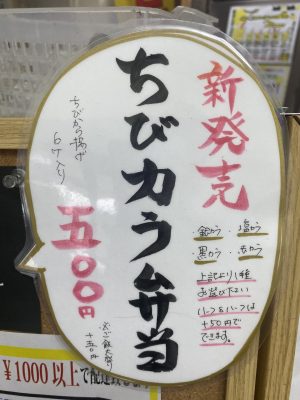 新発売
ちびカラ弁当
・銀カラ ・塩カラ
・黒カラ ・赤カラ
上記より1種
お選び下さい
ハーフ&ハーフは
+50円で
できます。
ちびから揚げ
6ケ入り
五〇〇円
ご飯大盛り
+50円
¥1000以上で配達